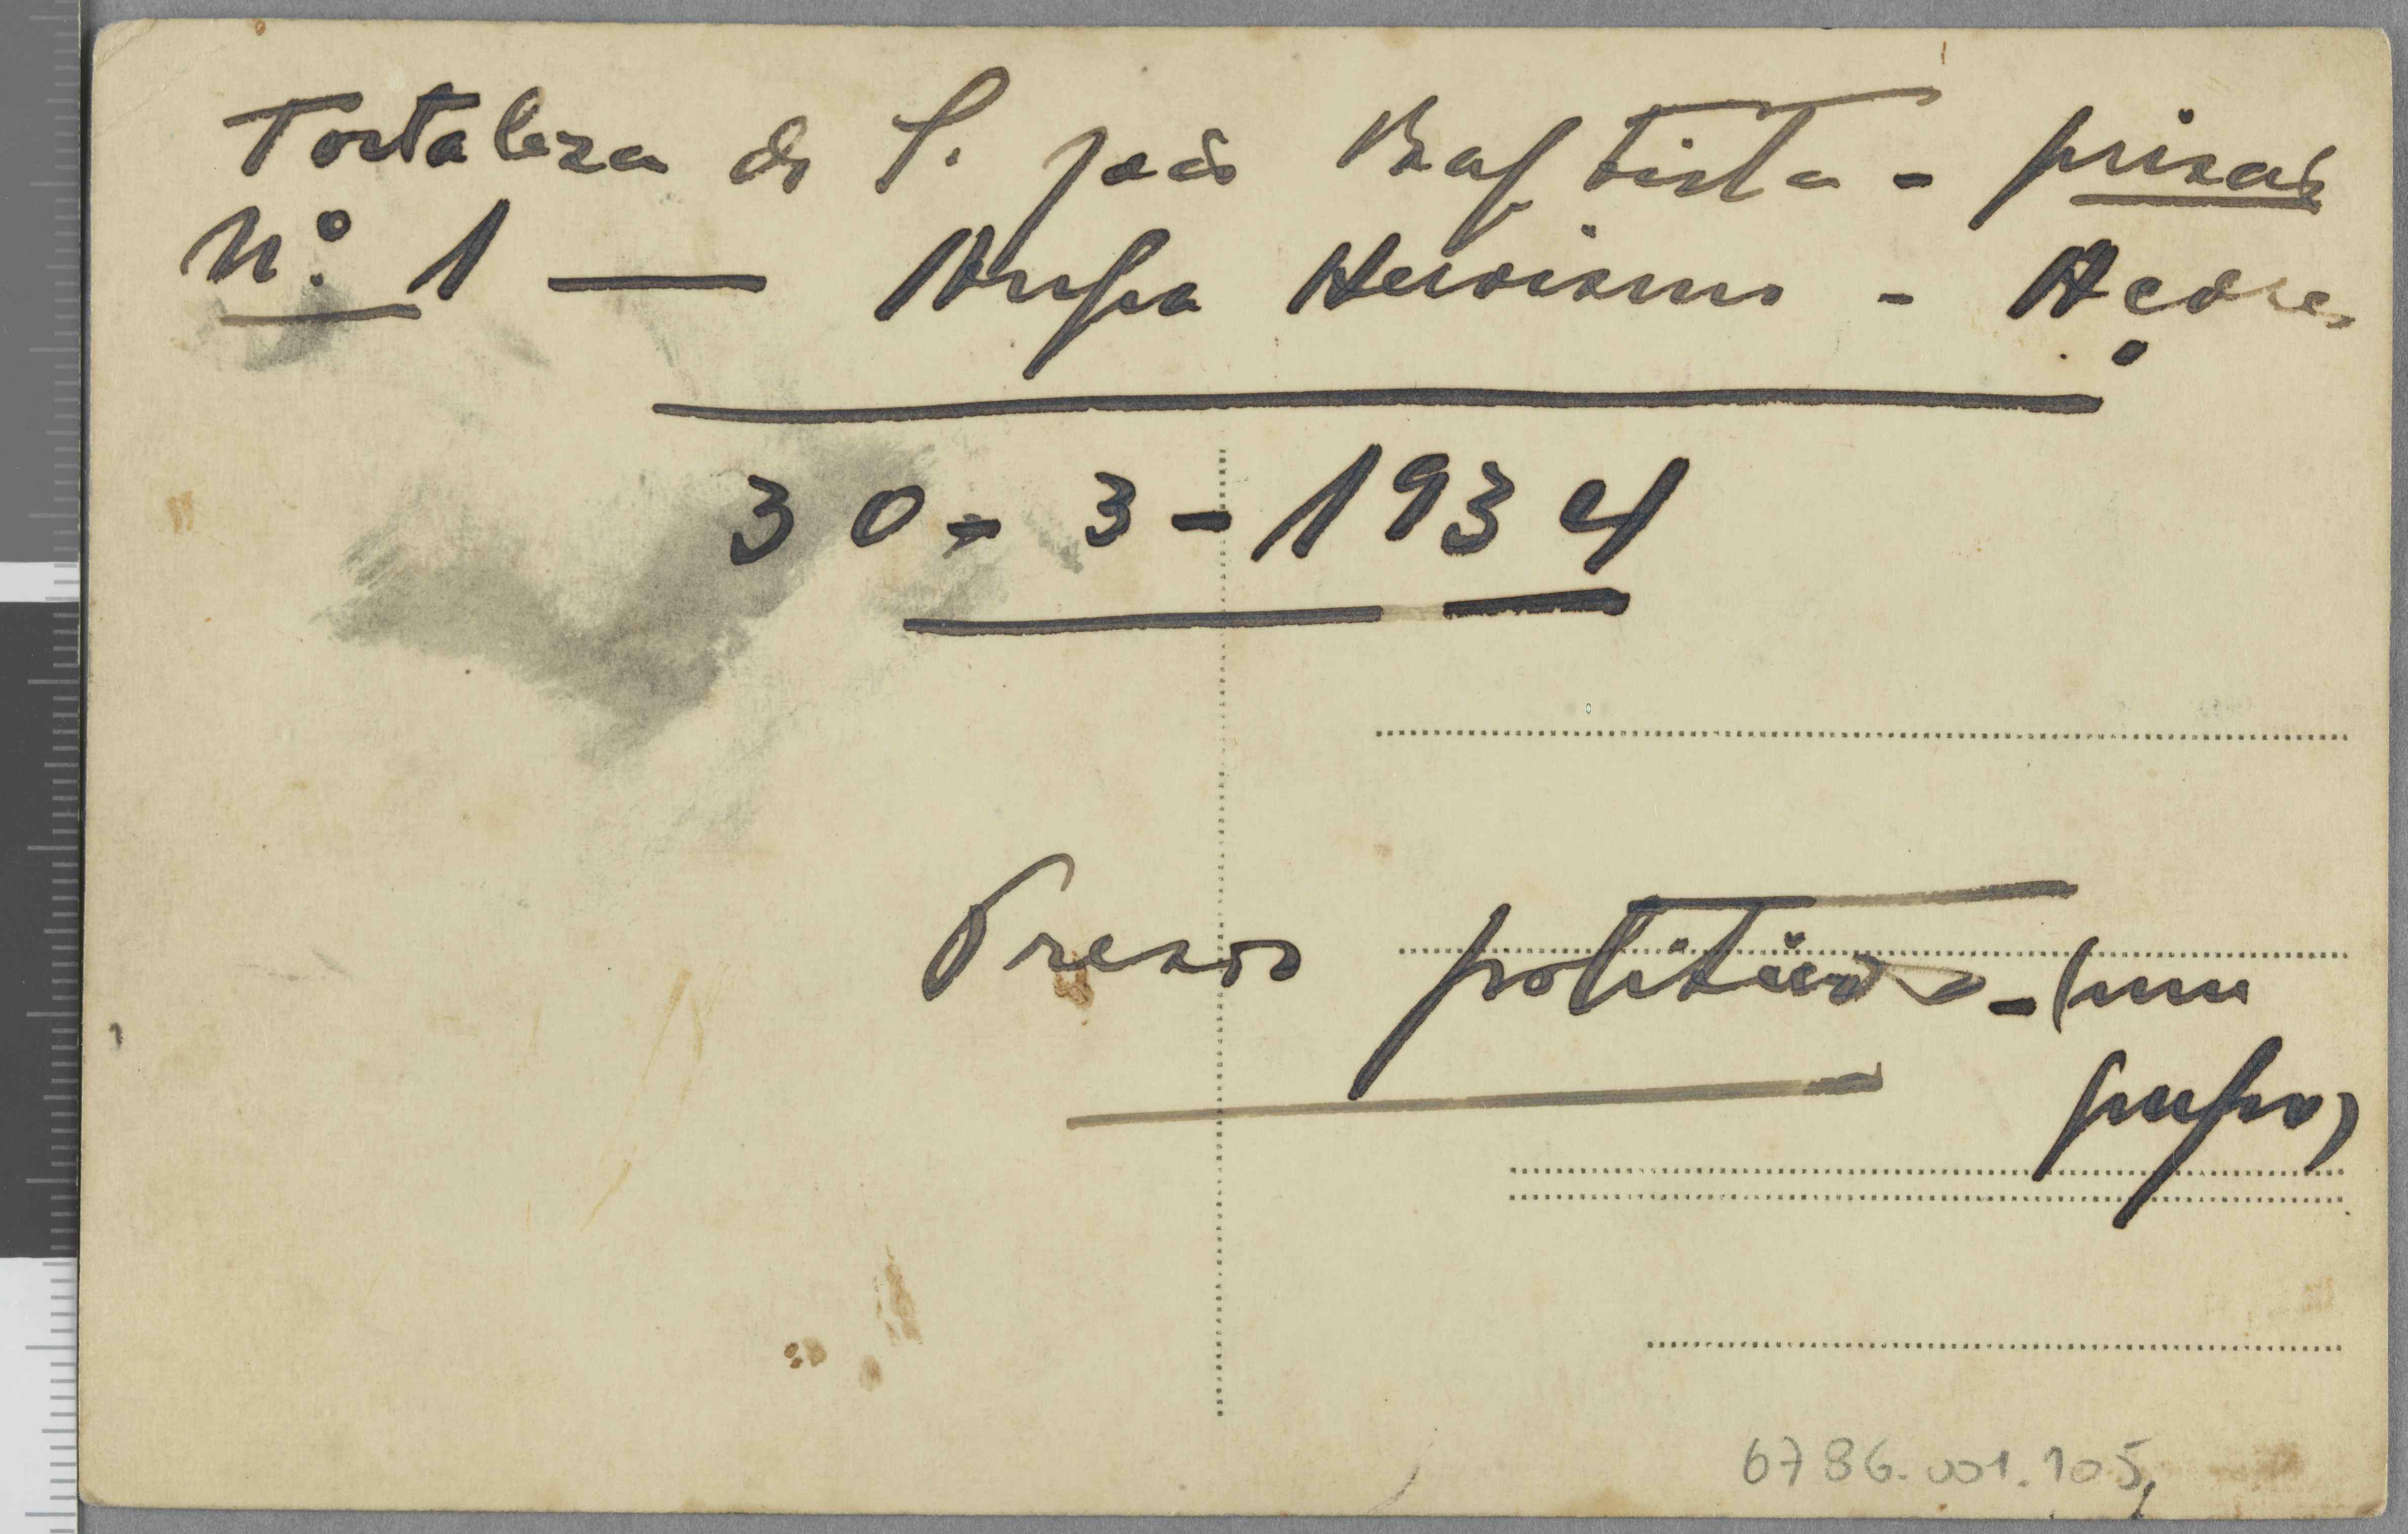 Fortaleza de S. João Baptista - prisão
Nº. 1 — Angra Heroismo - Açores
30 - 3 - 1934
Presos politicos - (um
grupo)
6786.001.105